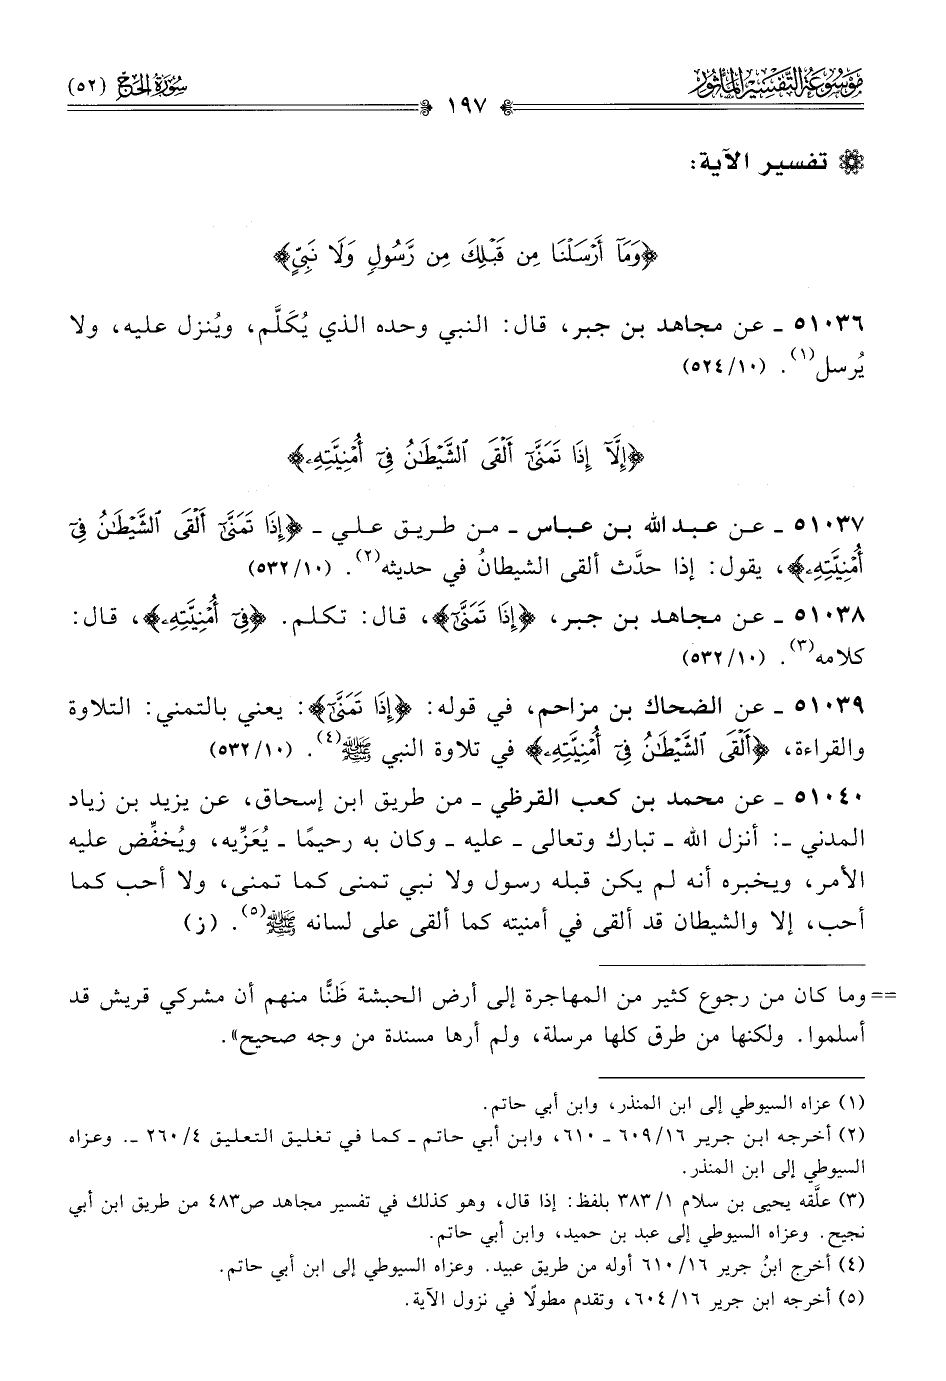 موسوعة التفسير المأثور
١٩٧
سورة الحج (٥٢)
تفسير الآية:
﴿وَمَآ أَرْسَلْنَا مِن قَبْلِكَ مِن رَّسُولٍ وَلَا نَبِيٍّ﴾
٥١٠٣٦ ـ عن مجاهد بن جبر، قال: النبي وحده الذي يُكَلَّم، ويُنزل عليه، ولا
يُرسل(١). (١٠/٥٢٤)
﴿إِلَّآ إِذَا تَمَنَّىٰٓ أَلْقَى ٱلشَّيْطَٰنُ فِىٓ أُمْنِيَّتِهِۦ﴾
٥١٠٣٧ ـ عن عبد الله بن عباس ـ من طريق علي ـ ﴿إِذَا تَمَنَّىٰٓ أَلْقَى ٱلشَّيْطَٰنُ فِىٓ
أُمْنِيَّتِهِۦ﴾، يقول: إذا حدَّث ألقى الشيطانُ في حديثه(٢). (١٠/٥٣٢)
٥١٠٣٨ ـ عن مجاهد بن جبر، ﴿إِذَا تَمَنَّىٰٓ﴾، قال: تكلم. ﴿فِىٓ أُمْنِيَّتِهِۦ﴾، قال:
كلامه(٣). (١٠/٥٣٢)
٥١٠٣٩ ـ عن الضحاك بن مزاحم، في قوله: ﴿إِذَا تَمَنَّىٰٓ﴾: يعني بالتمني: التلاوة
والقراءة، ﴿أَلْقَى ٱلشَّيْطَٰنُ فِىٓ أُمْنِيَّتِهِۦ﴾ في تلاوة النبي ﷺ(٤). (١٠/٥٣٢)
٥١٠٤٠ ـ عن محمد بن كعب القرظي ـ من طريق ابن إسحاق، عن يزيد بن زياد
المدني ـ: أنزل الله ـ تبارك وتعالى ـ عليه ـ وكان به رحيمًا ـ يُعَزِّيه، ويُخفِّض عليه
الأمر، ويخبره أنه لم يكن قبله رسول ولا نبي تمنى كما تمنى، ولا أحب كما
أحب، إلا والشيطان قد ألقى في أمنيته كما ألقى على لسانه ﷺ(٥). (ز)
== وما كان من رجوع كثير من المهاجرة إلى أرض الحبشة ظَنًّا منهم أن مشركي قريش قد
أسلموا. ولكنها من طرق كلها مرسلة، ولم أرها مسندة من وجه صحيح».
(١) عزاه السيوطي إلى ابن المنذر، وابن أبي حاتم.
(٢) أخرجه ابن جرير ١٦/٦٠٩ ـ ٦١٠، وابن أبي حاتم ـ كما في تغليق التعليق ٤/٢٦٠ ـ. وعزاه
السيوطي إلى ابن المنذر.
(٣) علَّقه يحيى بن سلام ١/٣٨٣ بلفظ: إذا قال، وهو كذلك في تفسير مجاهد ص٤٨٣ من طريق ابن أبي
نجيح. وعزاه السيوطي إلى عبد بن حميد، وابن أبي حاتم.
(٤) أخرج ابنُ جرير ١٦/٦١٠ أوله من طريق عبيد. وعزاه السيوطي إلى ابن أبي حاتم.
(٥) أخرجه ابن جرير ١٦/٦٠٤، وتقدم مطولًا في نزول الآية.